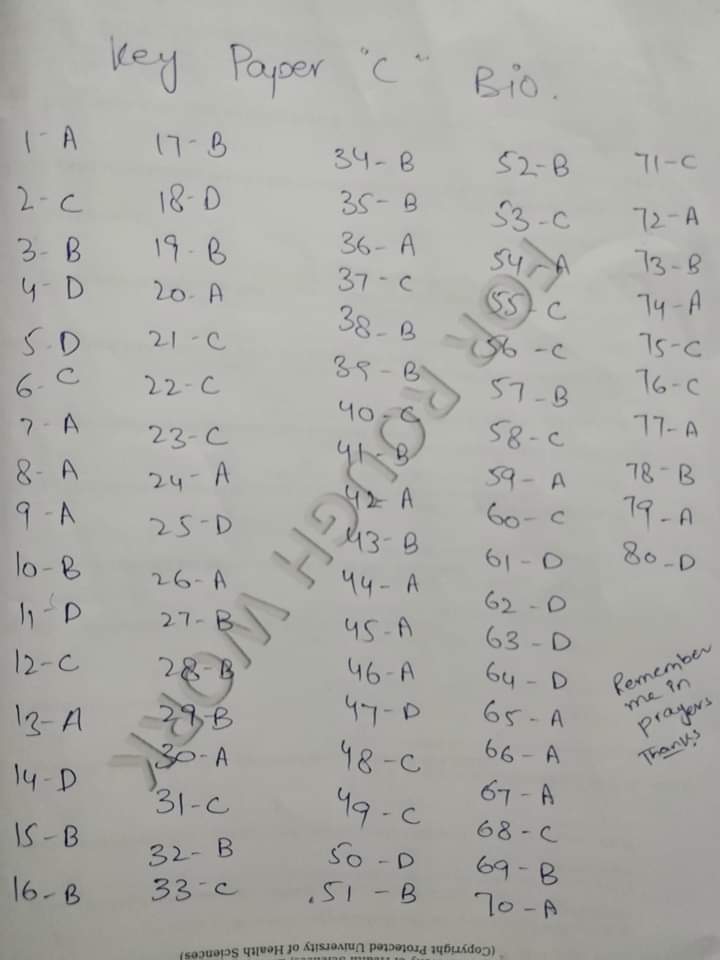 Key Paper "C" Bio.
1-A
2-C
3-B
4-D
5-D
6-C
7-A
8-A
9-A
10-B
11-D
12-C
13-A
14-D
15-B
16-B
17-B
18-D
19-B
20-A
21-C
22-C
23-C
24-A
25-D
26-A
27-B
28-B
29-B
30-A
31-C
32-B
33-C
34-B
35-B
36-A
37-C
38-B
39-B
40-C
41-B
42-A
43-B
44-A
45-A
46-A
47-D
48-C
49-C
50-D
.51-B
52-B
53-C
54-A
55-C
56-C
57-B
58-C
59-A
60-C
61-D
62-D
63-D
64-D
65-A
66-A
67-A
68-C
69-B
70-A
71-C
72-A
73-B
74-A
75-C
76-C
77-A
78-B
79-A
80-D
Remember
me in
prayers
Thanks
FOR ROUGH WORK
(Copyright Protected University of Health Sciences)